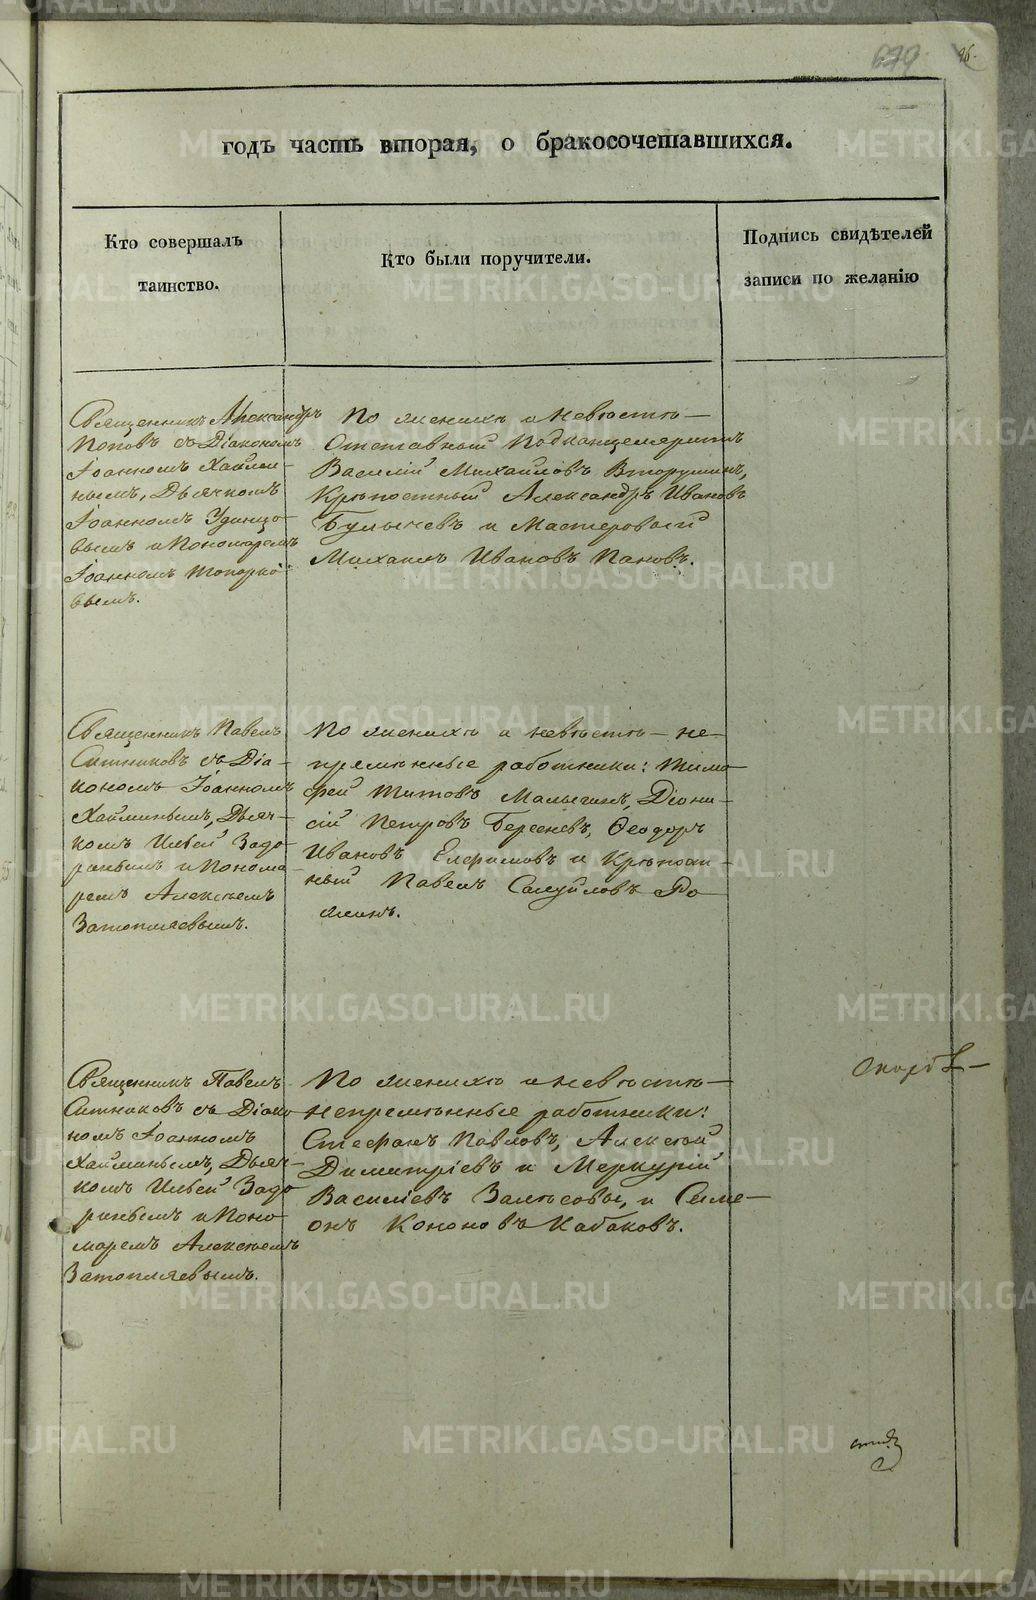 679. 96.
годъ часть вторая, о бракосочетавшихся.
Кто совершалъ
таинство.
Кто были поручители.
Подпись свидѣтелей
записи по желанію
Священникъ Александръ
Поповъ съ Діакономъ
Іоанномъ Хайми-
нымъ, Дьячкомъ
Іоанномъ Удинцо-
вымъ и Пономаремъ
Іоанномъ Топорко-
вымъ.
По женихѣ и невѣстѣ —
Отставный Подканцеляристъ
Василій Михайловъ Вторушинъ,
Крѣпостный Александръ Ивановъ
Булычевъ и Мастеровый
Михаилъ Ивановъ Пановъ.
Священникъ Павелъ
Ситниковъ съ Діа-
кономъ Іоанномъ
Хайминымъ, Дьяч-
комъ Ильей Задо-
ринымъ и Понома-
ремъ Алексѣемъ
Затопляевымъ.
По женихѣ и невѣстѣ — не-
премѣнные работники: Тимо-
фей Титовъ Малыгинъ, Діони-
сій Петровъ Берсеневъ, Ѳеодоръ
Ивановъ Елфимовъ и Крѣпост-
ный Павелъ Самуйловъ Ро-
жинъ.
Священникъ Павелъ
Ситниковъ съ Діако-
номъ Іоанномъ
Хайминымъ, Дьяч-
комъ Ильей Задо-
ринымъ и Поно-
маремъ Алексѣемъ
Затопляевымъ.
По женихѣ и невѣстѣ —
непремѣнные работники:
Стефанъ Павловъ, Алексѣй
Димитріевъ и Меркурій
Василіевъ Залѣсовы, и Симе-
онъ Кононовъ Кабаковъ.
METRIKI.GASO-URAL.RU